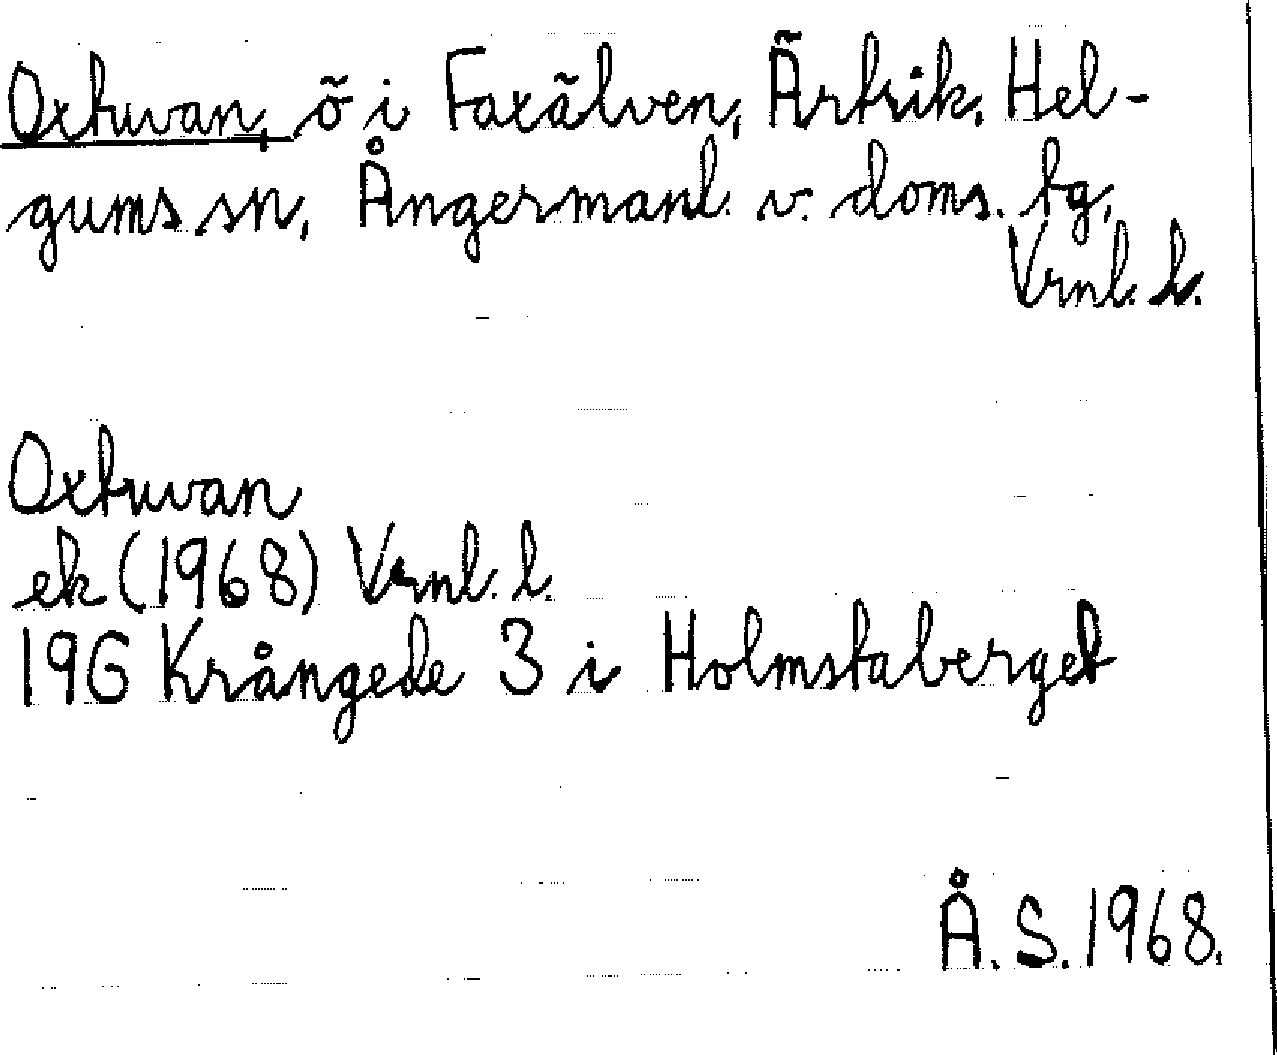 Oxtuvan, ö i Faxälven, Ärtrik, Hel-
gums sn, Ångermanl. v. doms. tg,
Vrnl. l.
Oxtuvan
ek (1968) Vrnl. l.
19G Krångede 3 i Holmstaberget
Å. S. 1968.